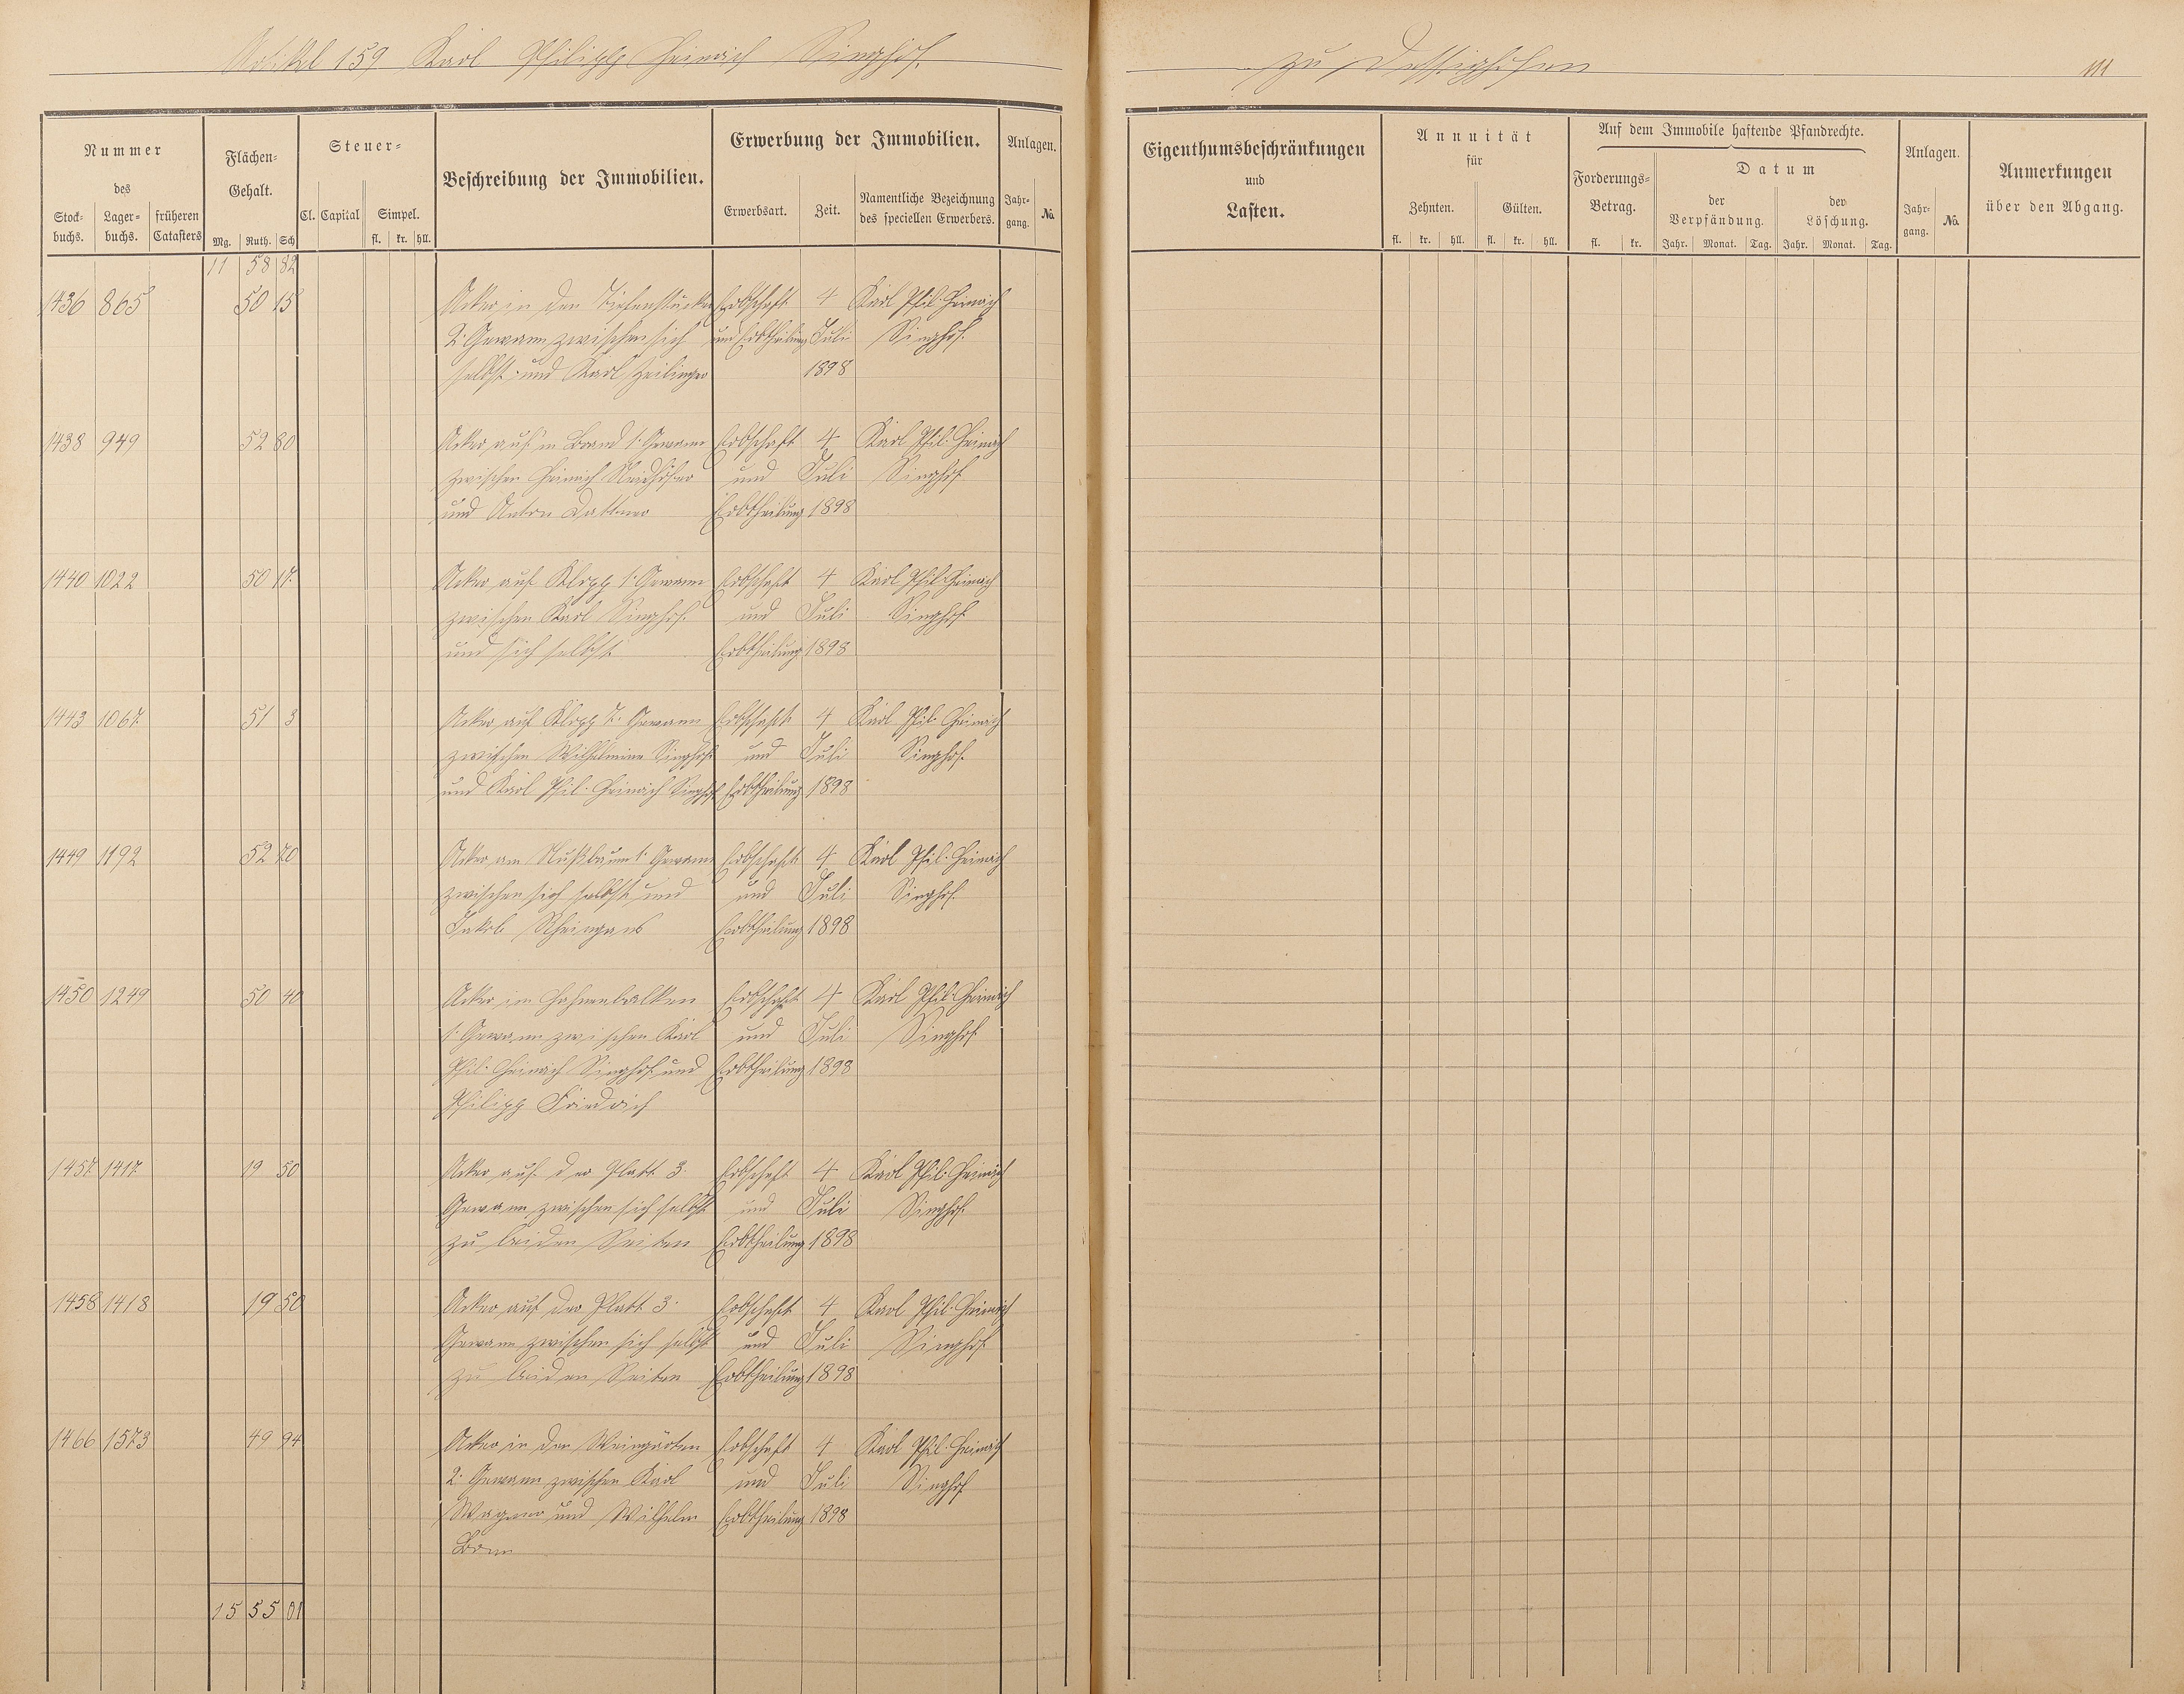 Artikel 159 Karl Philipp Heinrich Singhof.
Nummer
des
Stock-
buchs.
Lager-
buchs.
früheren
Catasters
Flächen-
Gehalt.
Mg. Ruth. Sch
Steuer-
Cl. Capital Simpel.
fl. kr. hll.
Beschreibung der Immobilien.
Erwerbung der Immobilien.
Erwerbsart. Zeit.
Namentliche Bezeichnung
des speciellen Erwerbers.
Anlagen.
Jahr-
gang.
No.
11 58 82
1436 865 50 15 Acker in den Tiefenstücker Erbschaft 4 Karl Phil. Heinrich
2. Gewann zwischen sich und Erbtheilung Juli Singhof.
selbst und Karl Heilinger 1898
1438 949 52 80 Acker auf'm Brand 1. Gewann Erbschaft 4 Karl Phil. Heinrich
zwischen Heinrich Neidhöfer und Juli Singhof
und Anton Dattner Erbtheilung 1898
1440 1022 50 17. Acker auf Klopp 1. Gewann Erbschaft 4 Karl Phil. Heinrich
zwischen Karl Singhof. und Juli Singhof
und sich selbst Erbtheilung 1898
1443 1067. 51 3 Acker auf Klopp 7. Gewann Erbschaft 4 Karl Phil. Heinrich
zwischen Wilhelmine Singhof und Juli Singhof.
und Karl Phil. Heinrich Singhof Erbtheilung 1898
1449 1192 52 70 Acker am Nußbaum 1. Gewann Erbschaft 4 Karl Phil. Heinrich
zwischen sich selbst und und Juli Singhof.
Jakob Rheingans Erbtheilung 1898
1450 1249 50 40 Acker im Hahnenbalken Erbschaft 4 Karl Phil. Heinrich
1. Gewann zwischen Karl und Juli Singhof
Phil. Heinrich Singhof und Erbtheilung 1898
Philipp Friedrich
1457. 1417. 19 50 Acker auf der Platt 3. Erbschaft 4 Karl Phil. Heinrich
Gewann zwischen sich selbst und Juli Singhof.
zu beiden Seiten Erbtheilung 1898
1458 1418 19 50 Acker auf der Platt 3. Erbschaft 4 Karl Phil. Heinrich
Gewann zwischen sich selbst und Juli Singhof
zu beiden Seiten Erbtheilung 1898
1466 1573 49 94 Acker in den Weingärten Erbschaft 4 Karl Phil. Heinrich
2. Gewann zwischen Karl und Juli Singhof
Wagner und Wilhelm Erbtheilung 1898
15 55 01
zu Dessighofen 111
Eigenthumsbeschränkungen
und
Lasten.
Annuität
für
Zehnten. Gülten.
fl. kr. hll. fl. kr. hll.
Auf dem Immobile haftende Pfandrechte.
Forderungs-
Betrag.
fl. kr.
Datum
der
Verpfändung.
der
Löschung.
Jahr. Monat. Tag. Jahr. Monat. Tag.
Anlagen.
Jahr-
gang.
No.
Anmerkungen
über den Abgang.